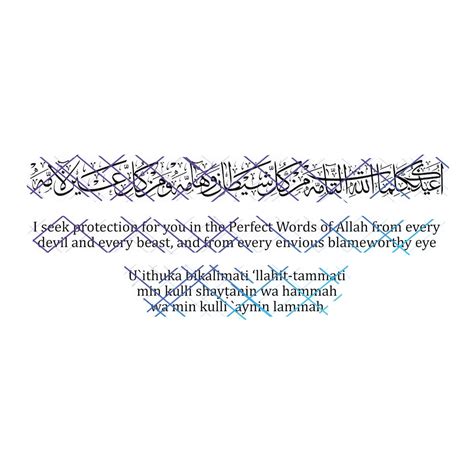 أعيذك بكلمات الله التامة من كل شيطان وهامة ومن كل عين لامة
I seek protection for you in the Perfect Words of Allah from every
devil and every beast, and from every envious blameworthy eye
U`ithuka bikalimati ‘llahit-tammati
min kulli shayṭanin wa hammah
wa min kulli `aynin lammah